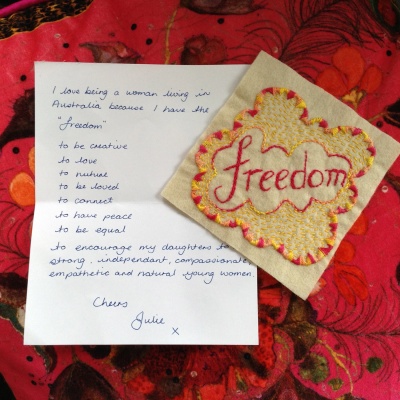 I love being a woman living in
Australia because I have the
"freedom"
to be creative
to love
to nutual
to be loved
to connect
to have peace
to be equal
to encourage my daughters to
strong, independant, compassionate,
empathetic and natural young women.
Cheers
Julie
x
freedom